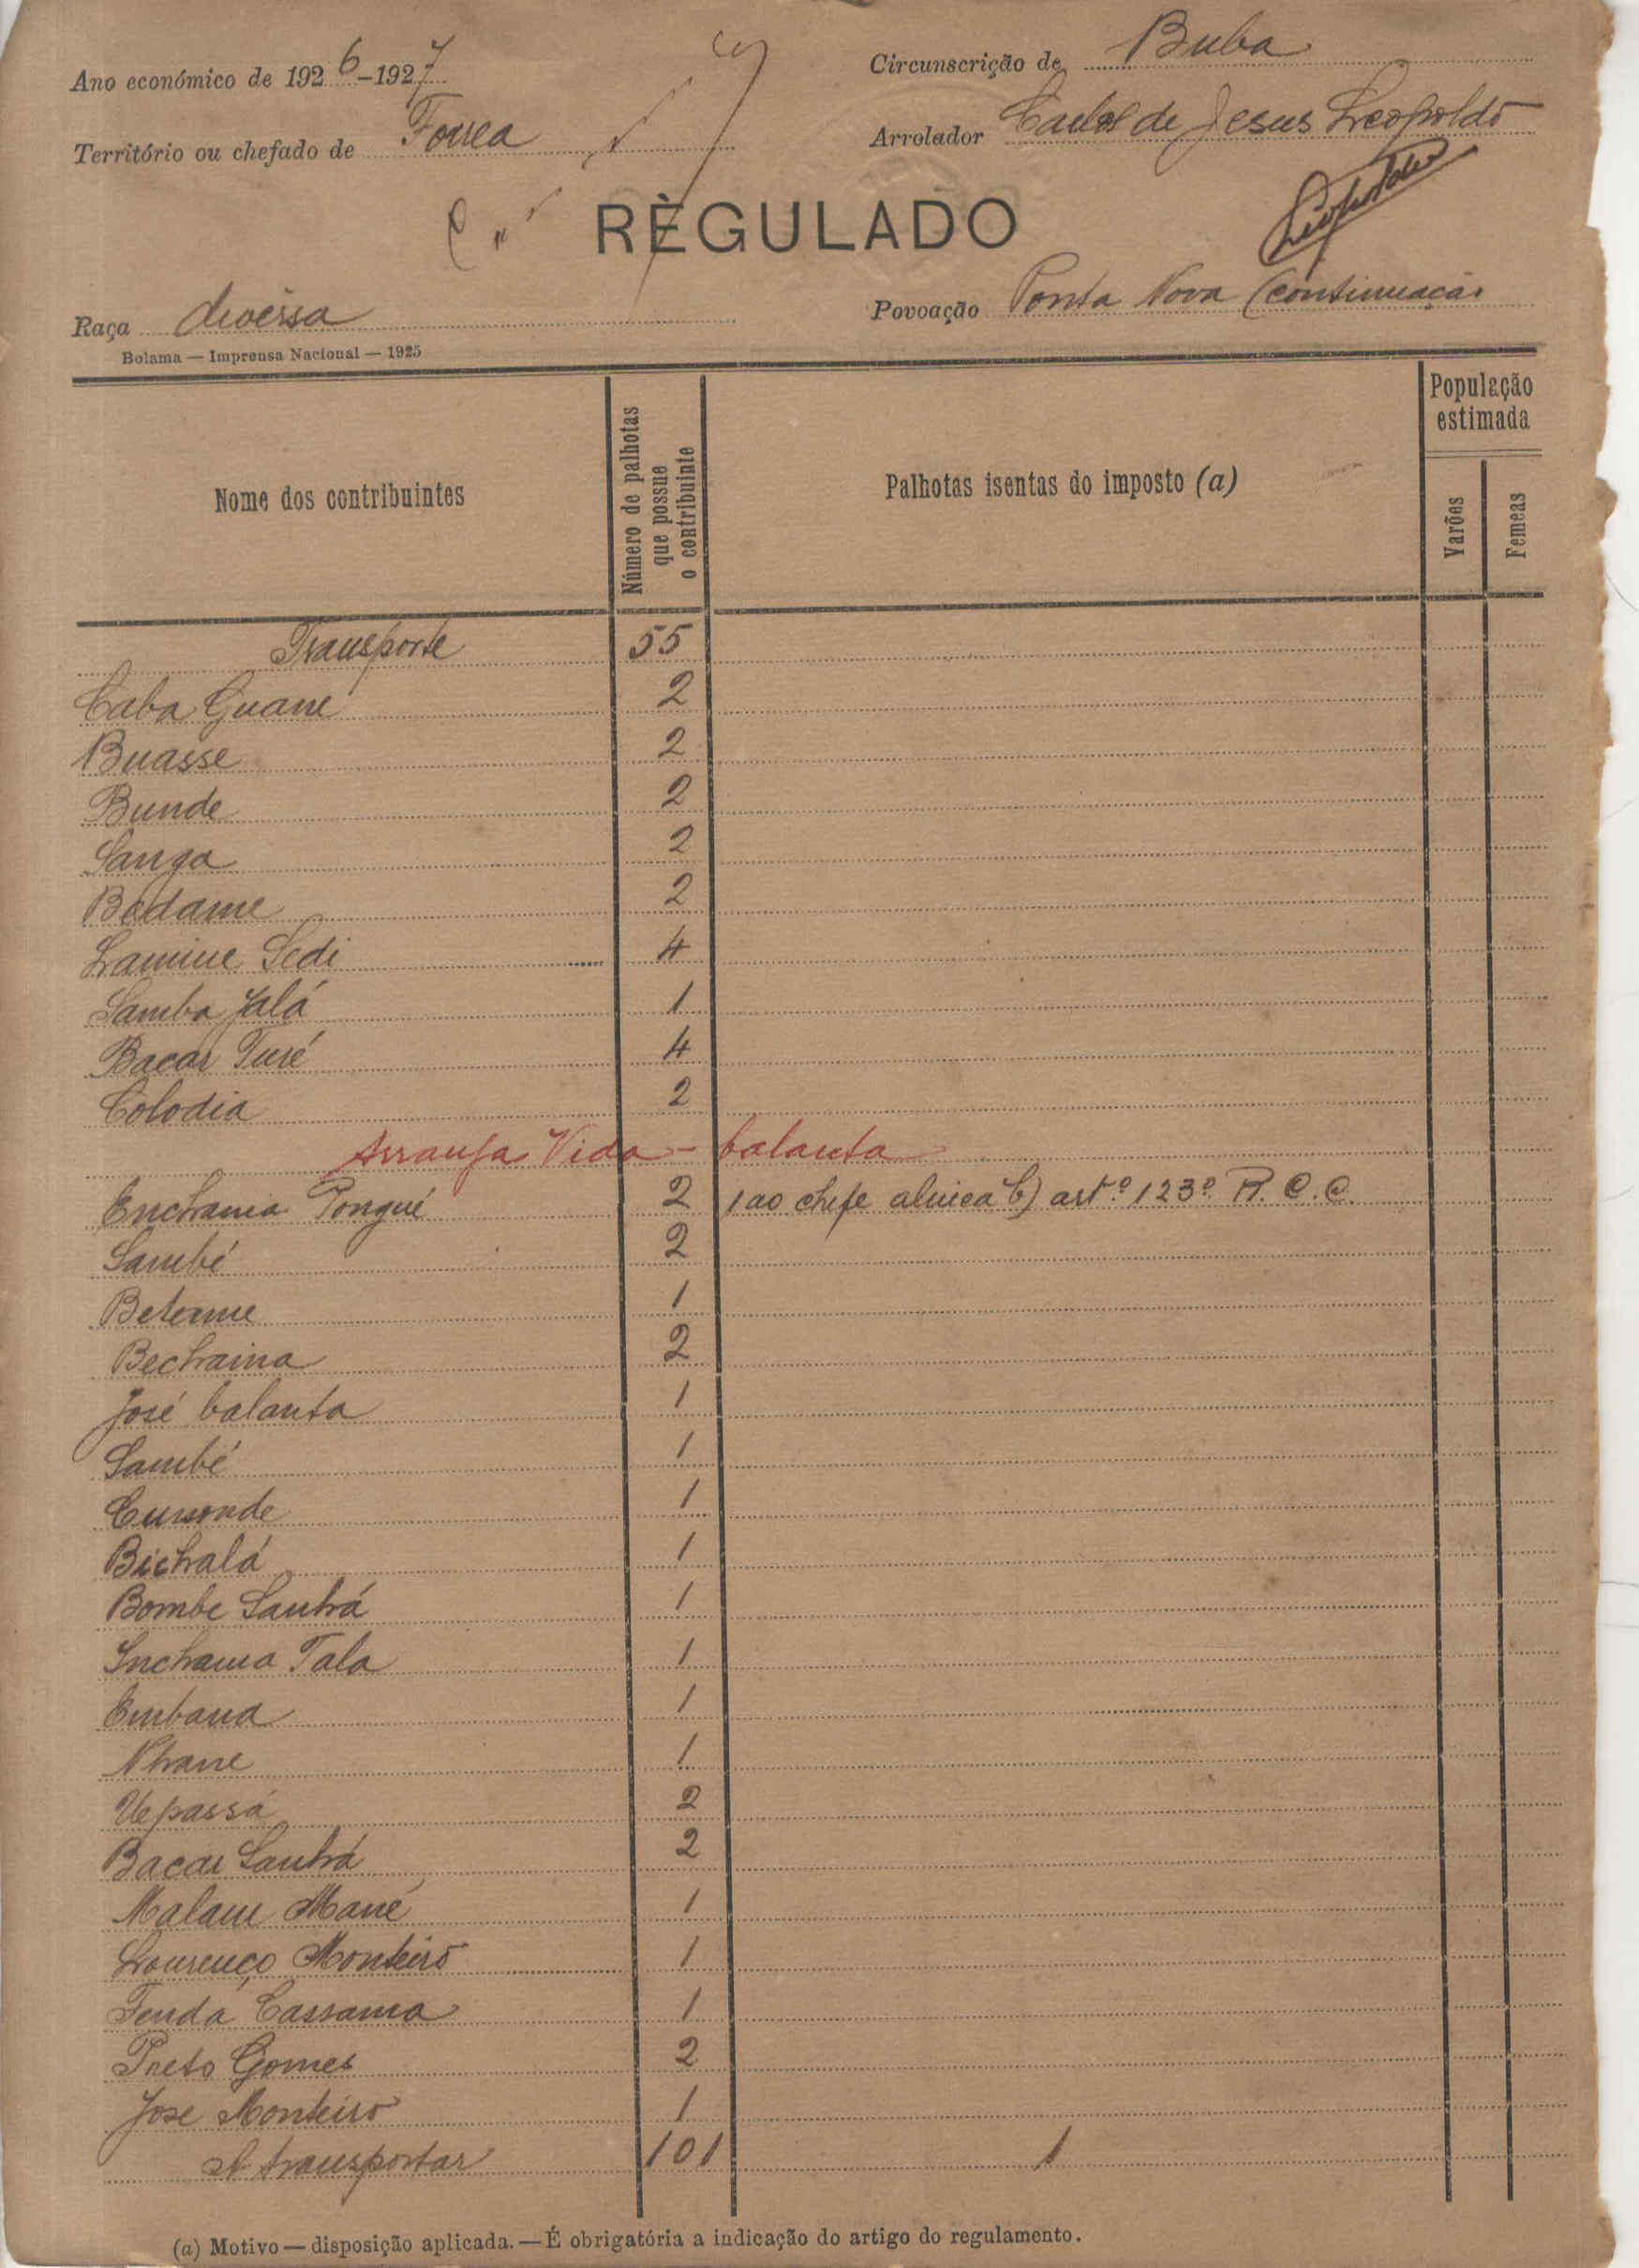 Ano económico de 1926-1927
Circunscrição de Buba
Território ou chefado de Fouca
Arrolador Carlos de Jesus Leopoldo
REGULADO
Leopoldo
Raça diversa
Povoação Ponta Nova (continuação
Bolama — Imprensa Nacional — 1925
Nome dos contribuintes
Número de palhotas que possue o contribuinte
Palhotas isentas do imposto (a)
População estimada
Varões
Femeas
Transporte 55
Caba Guane 2
Buasse 2
Bunde 2
Sanga 2
Bedame 2
Lamine Sedi 4
Samba Jalá 1
Bacar Turé 4
Colodia 2
Arranja Vida - balanta
Enchama Pongué 2 1 ao chefe alinea b) artº 123º R. C. C.
Sambé 2
Betame 1
Bechaina 2
José balanta 1
Sambé 1
Cumonde 1
Bichalá 1
Bombe Sanhá 1
Inchama Tala 1
Embana 1
Nhane 1
Uepassá 2
Bacar Sanhá 2
Malam Mané 1
Lourenço Monteiro 1
Fendá Cassama 1
Preto Gomes 2
Jose Monteiro 1
A transportar 101 1
(a) Motivo — disposição aplicada. — É obrigatória a indicação do artigo do regulamento.